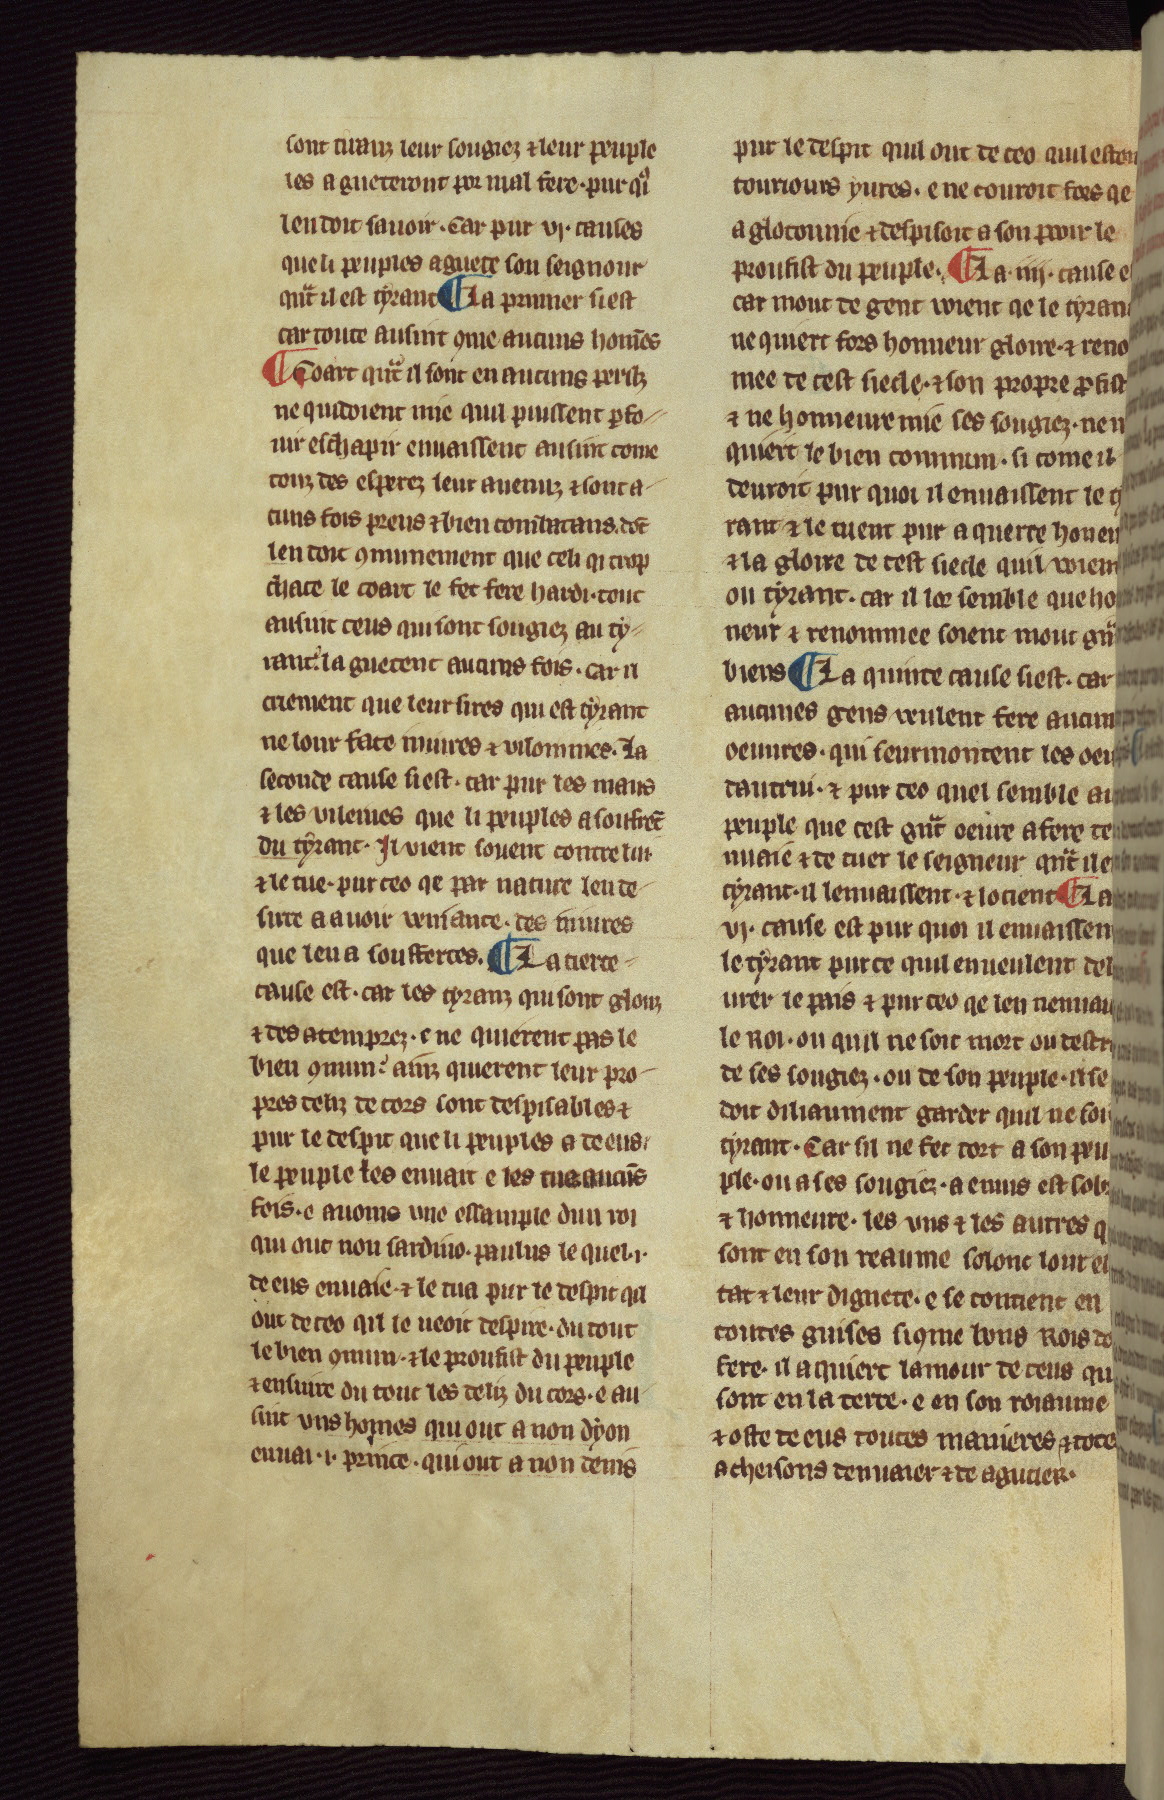 sont tiranz leur sougiez ⁊ leur peuple
les agueteront por mal fere · pur qͦi
len doit sauoir · Car pur vj · causes
que li peuples aguete son seignour
qͣt il est tyrant ¶ La primier si est
car toute ausint ꝯme aucuns hom̄es
¶ Coart qͣt il sont en aucuns perilz
ne quidoient mie quil puissent ꝑ fo-
uir eschapir enuaissent ausint come
touz des esperez leur auenuz ⁊ sont a-
cuns fois preus ⁊ bien combatans. dōt
len doit ꝯmunement que celi qi trop
chace le coart le fet fere hardi · tout
ausint ceus qui sont sougiez au ty-
rant la guetent aucuns fois · car il
criement que leur sires qui est tyrant
ne lour face iniures ⁊ vilommes · La
seconde cause si est · car pur les maus
⁊ les vilenies que li peuples a souffrēt
du tyrant · Il vient souent contre lui
⁊ le tue · pur ceo qe par nature len de-
sirre a auoir veniance · des iniures
que len a souffertes. ¶ La tierce-
cause est · car les tyranz qui sont glouz
⁊ desatemprez · e ne quierent pas le
bien ꝯmun · ainz quierent leur pro-
pres deliz de cors sont despisables ⁊
pur le despit que li peuples a de eus
le peuple les enuait e les tue aucūs
fois · e auoms vne essample dun roi
qui out non sardino · paulus le quel · i ·
de eus enuaie · ⁊ le tua pur le despit qil
out de ceo qil le ueoit despire · du tout
le bien ꝯmun · ⁊ le proufist du peuple
⁊ ensuire du tout les deliz du cors · e au-
sint vns homes qui out a non dyon
enuai · i · prince · qui out a non denis
pur le despit quil out de ceo quil estoit
touriours yures · e ne couroit fors qe
a glotounie ⁊ despisoit a son pooir le
proufist du peuple · ¶ La · iiij · cause e
car mout de gent voient qe le tyran
ne quiert fors honneur gloire · ⁊ reno
mee de cest siecle · ⁊ son propre ꝓfist
⁊ ne honneure mie ses sougiez · ne n
quiert le bien commun · si come il
deuroit pur quoi il enuaissent le ty
rant ⁊ le tuent pur aquerre honeu
⁊ la gloire de cest siecle quil voient
ou tyrant · car il lor semble que ho
neur ⁊ renommee soient mout gͣn
biens ¶ La quinte cause si est · car
aucunes gens veulent fere aucun
oeuures · qui seurmontent les oeu
dautrui · ⁊ pur ceo quel semble au
peuple que cest gͣnt oeure a fere de
nuaie ⁊ de tuer le seigneur qͣt il e
tyrant · il lenuaissent · ⁊ locient ¶ La
vj · cause est pur quoi il enuaissen
le tyrant pur ce quil en ueulent del
urer le pais ⁊ pur ceo qe len nenuai
le Roi · ou quil ne soit mort ou destr
de ses sougiez · ou de son peuple · il se
doit diliaument garder quil ne soi
tyrant · Car sil ne fet tort a son peu
ple · ou a ses sougiez · a enuis est sob
⁊ honneure · les vns ⁊ les autres q
sont en son reaume solonc lour es
tat ⁊ leur dignete · e se contient en
toutes guises siꝯme bons Rois do
fere · il aquiert lamour de ceus qu
sont en la terre · e en son roiaume
⁊ oste de eus toutes manieres ⁊ tote
acheisons denuaier ⁊ de aguetier ·